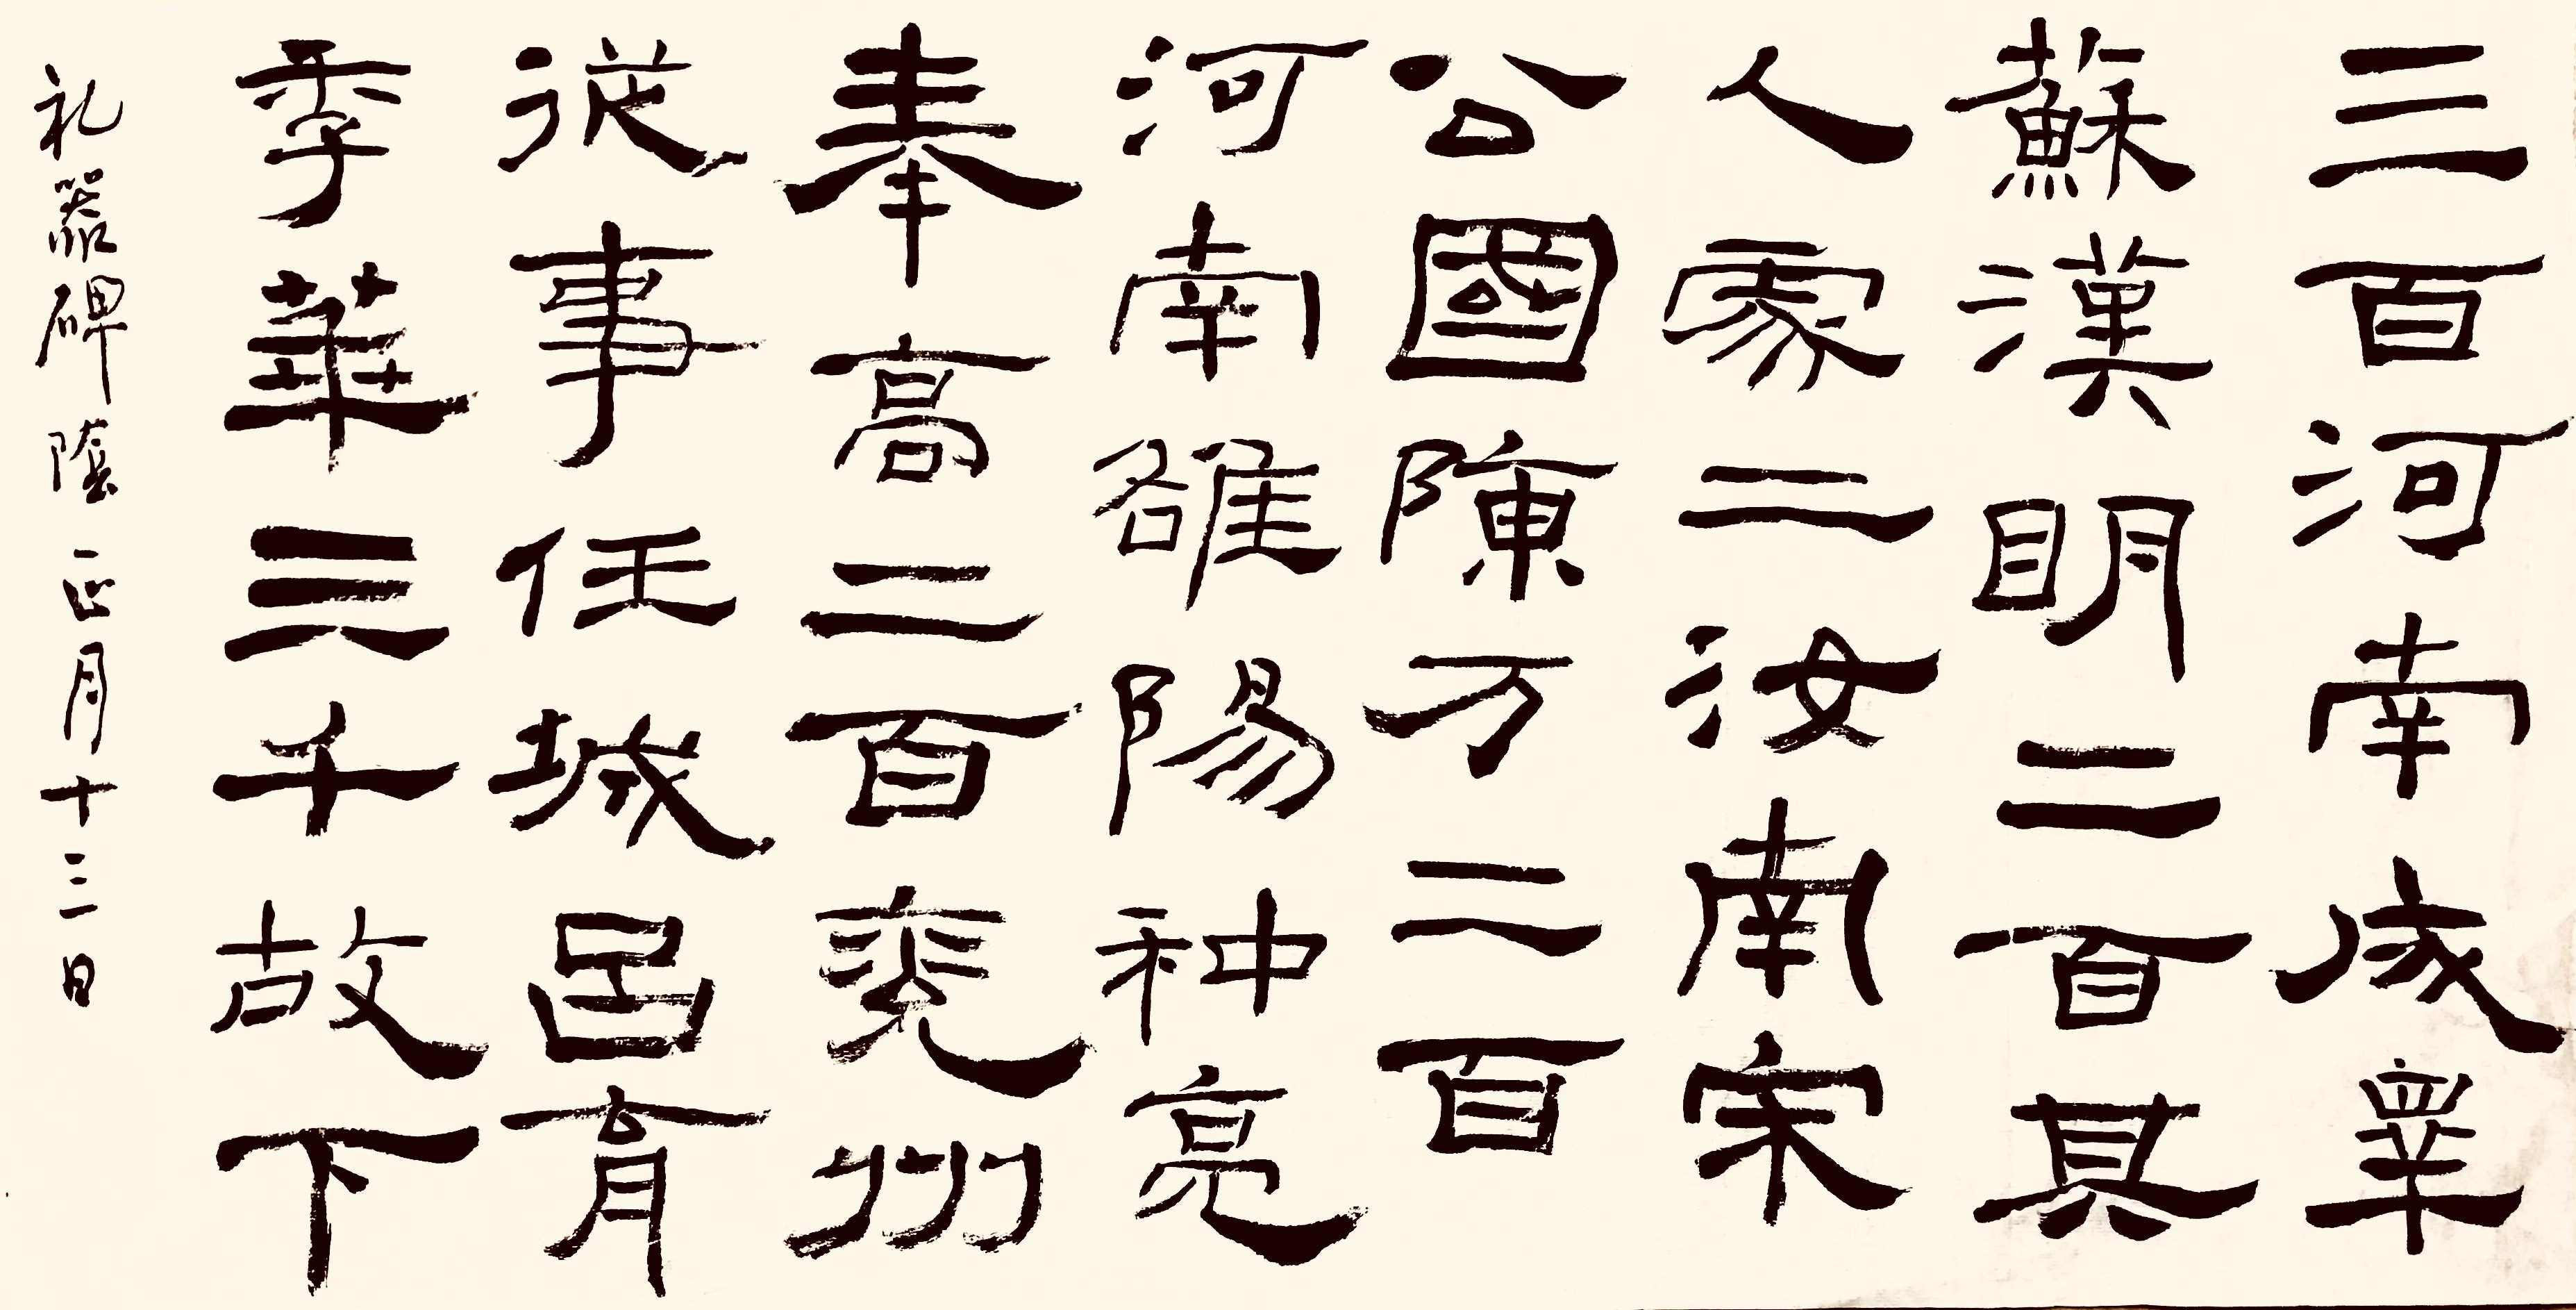 三百河南成睪
蘇漢明二百其
人處二汝南宋
公國陳方二百
河南雒陽种亮
奉高二百兖州
從事任城呂育
季華三千故下
礼器碑陰正月十三日